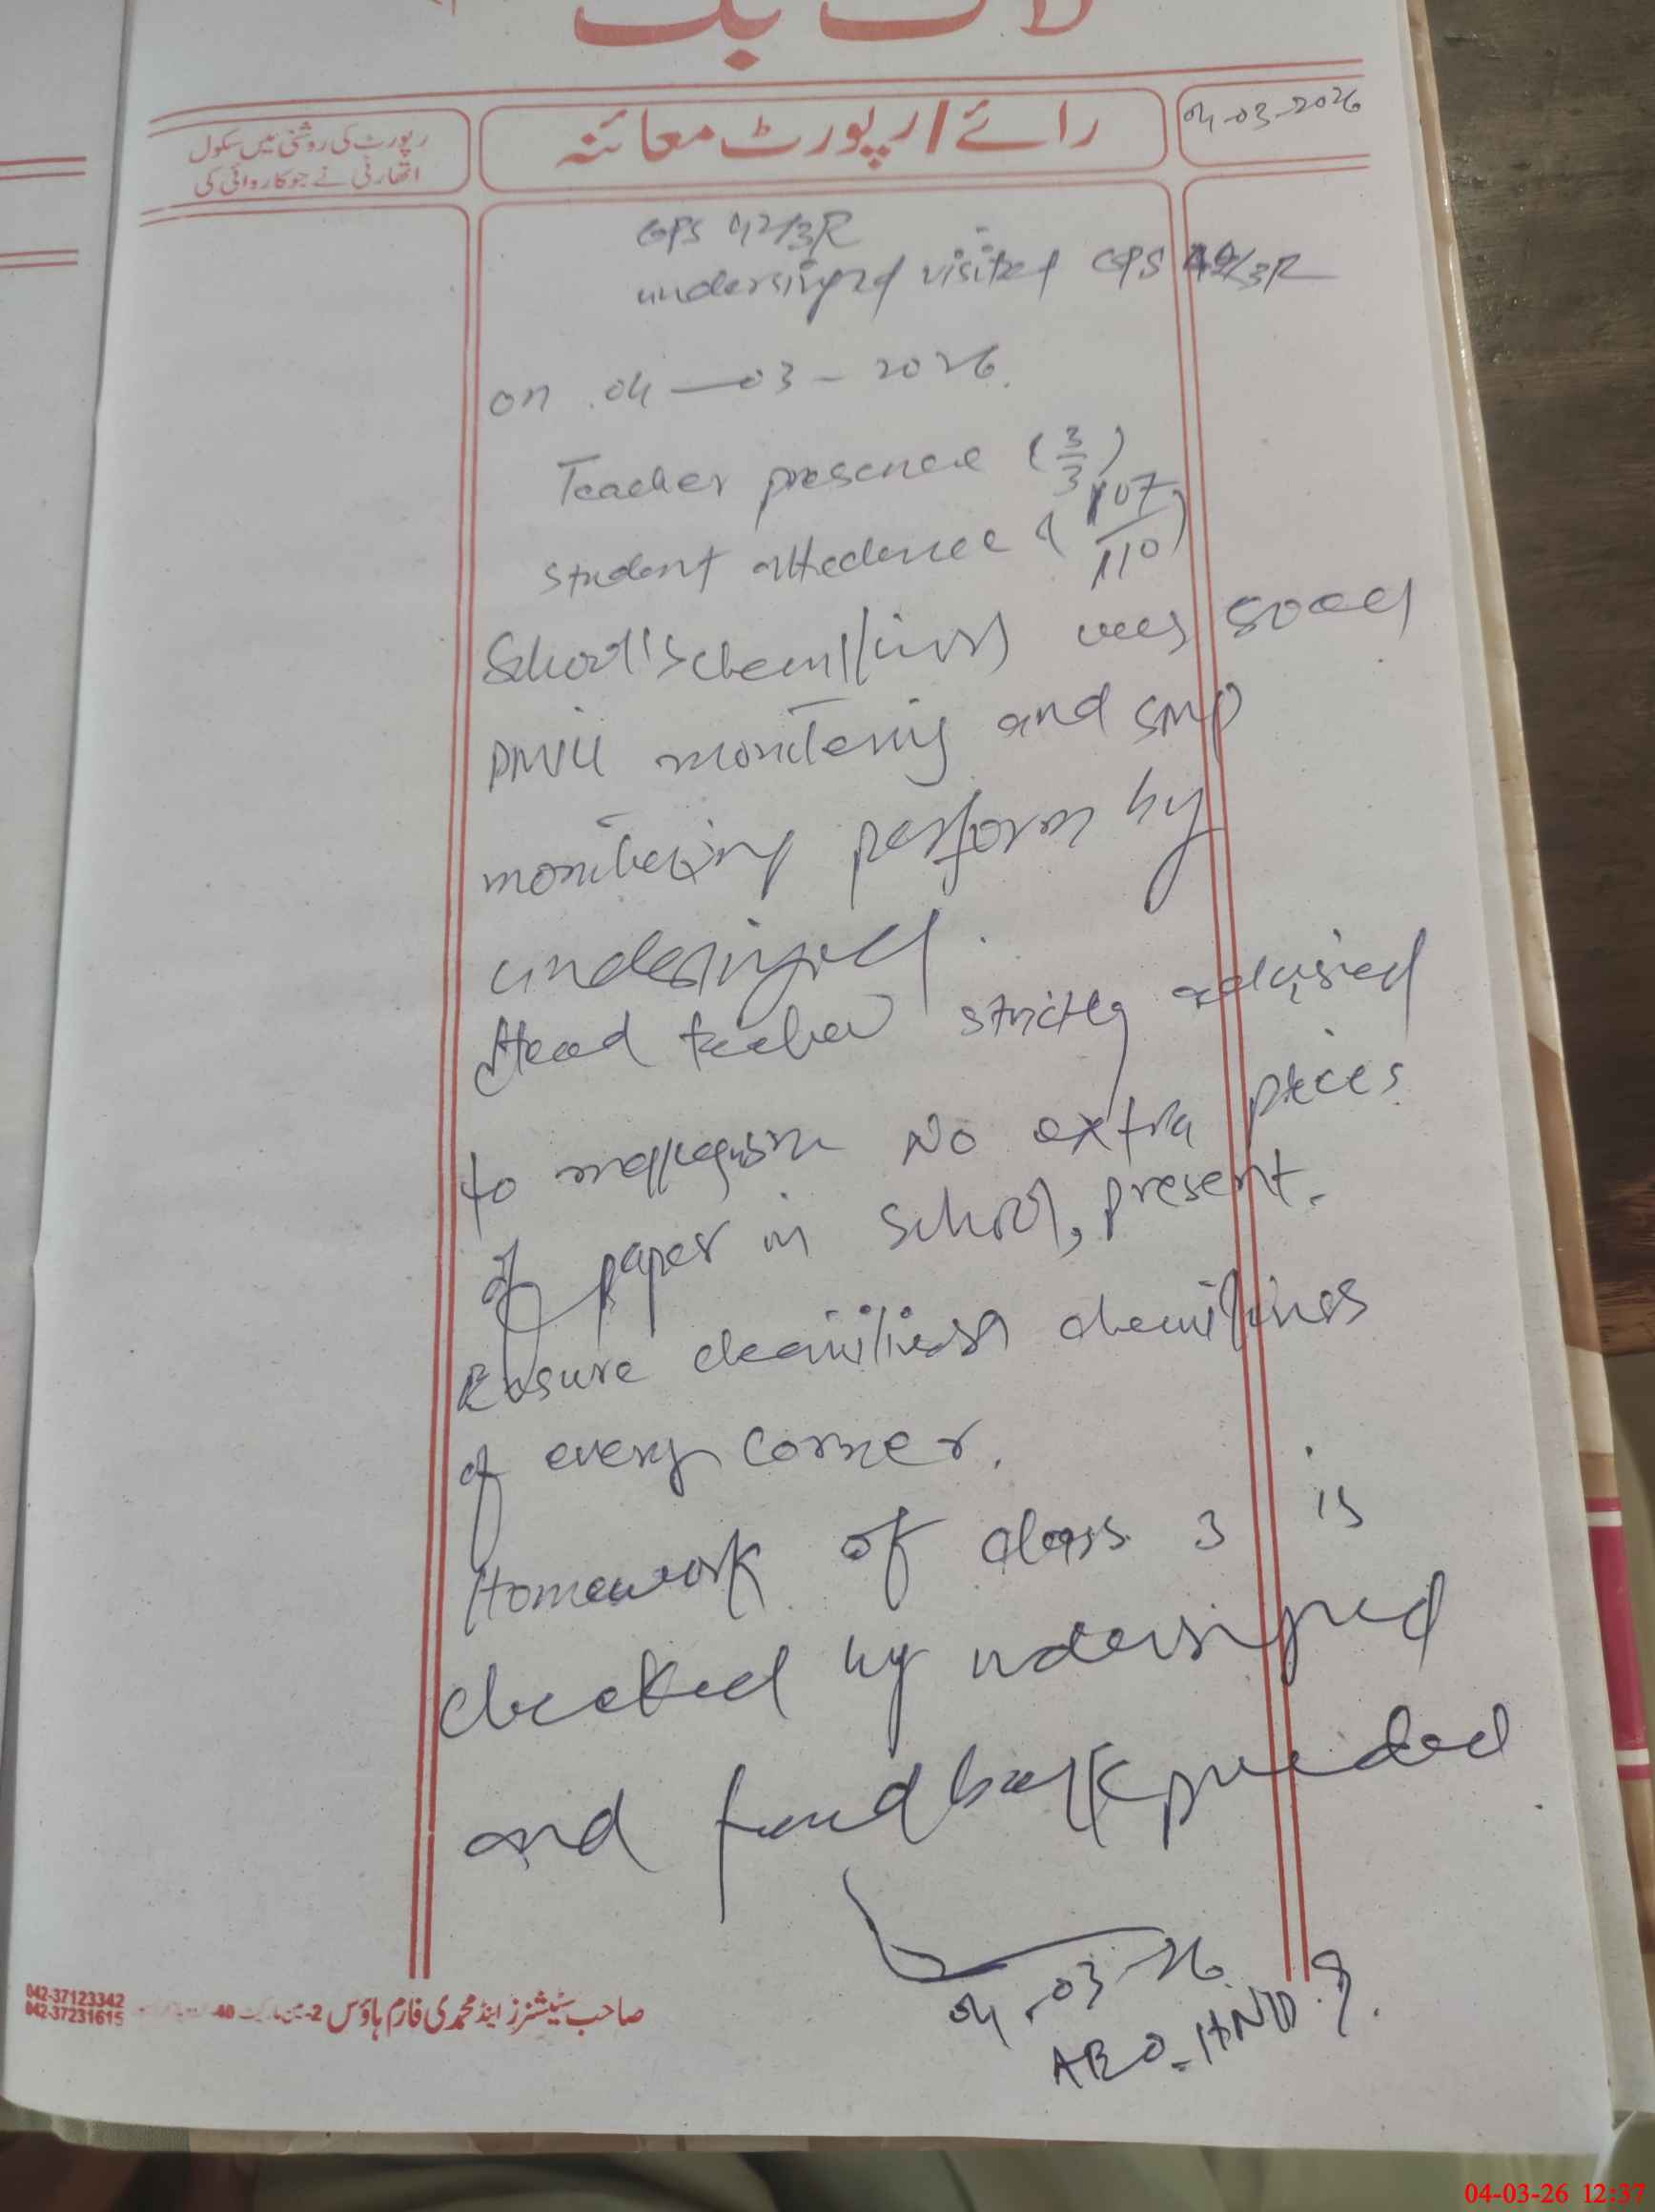 لاگ بک
رائے / رپورٹ معائنہ
04-03-2026
رپورٹ کی روشنی میں سکول
اتھارٹی نے جو کاروائی کی
GPS 42/3R
undersigned visited GPS 42/3R
on 04-03-2026.
Teacher presence (3/3)
student attedence (107/110)
School's was good
monitering and SMP
monitering perform by
undersigned.
Head teacher strictly advised
to No extra pieces
of paper in school, present.
Ensure
of every corner.
Homework of class 3 is
checked by undersigned
and feedback provided
04-03-26
AEO.
صاحب سٹیشنرز اینڈ محمدی فارم ہاؤس
042-37123342
042-37231615
04-03-26 12:37